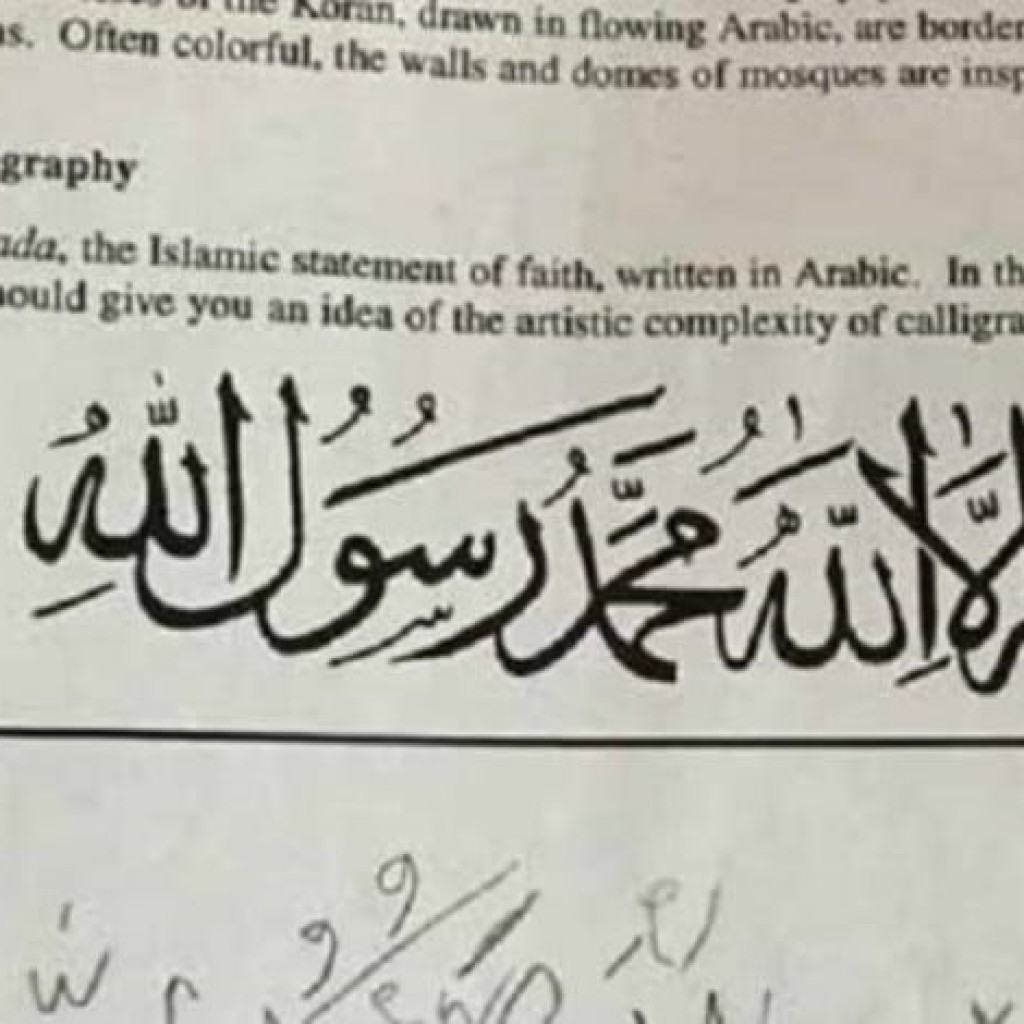 of the Koran, drawn in flowing Arabic, are border
ns. Often colorful, the walls and domes of mosques are insp
graphy
ada, the Islamic statement of faith, written in Arabic. In th
hould give you an idea of the artistic complexity of calligra
اِلَّا اللّٰهُ مُحَمَّدٌ رَسُولُ اللّٰهِ